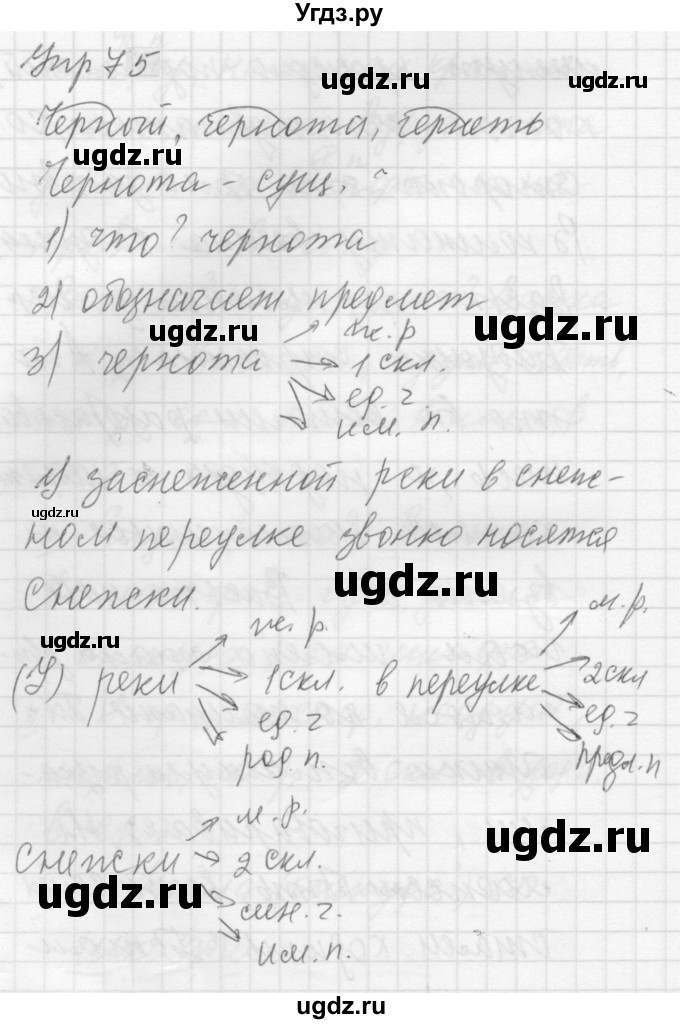 Угдз.ру
Упр 75
ugdz.ru
ugdz.ru
Черный, чернота, чернеть
ugdz.ru
Чернота - сущ. ?
1) что? чернота
2) обозначает предмет
ugdz.ru
ugdz.ru
ж.р
3) чернота
1 скл.
ед. ч.
им. п.
У заснеженной реки в снеж-
ugdz.ru
ном переулке звонко носятся
ugdz.ru
снежки.
ugdz.ru
ж. р.
м. р.
(У) реки
1 скл.
в переулке
2 скл
ед. ч
ед. ч
род. п.
предл. п
м. р.
ugdz.ru
Снежки
2 скл.
ugdz.ru
мн. ч.
им. п.
ugdz.ru